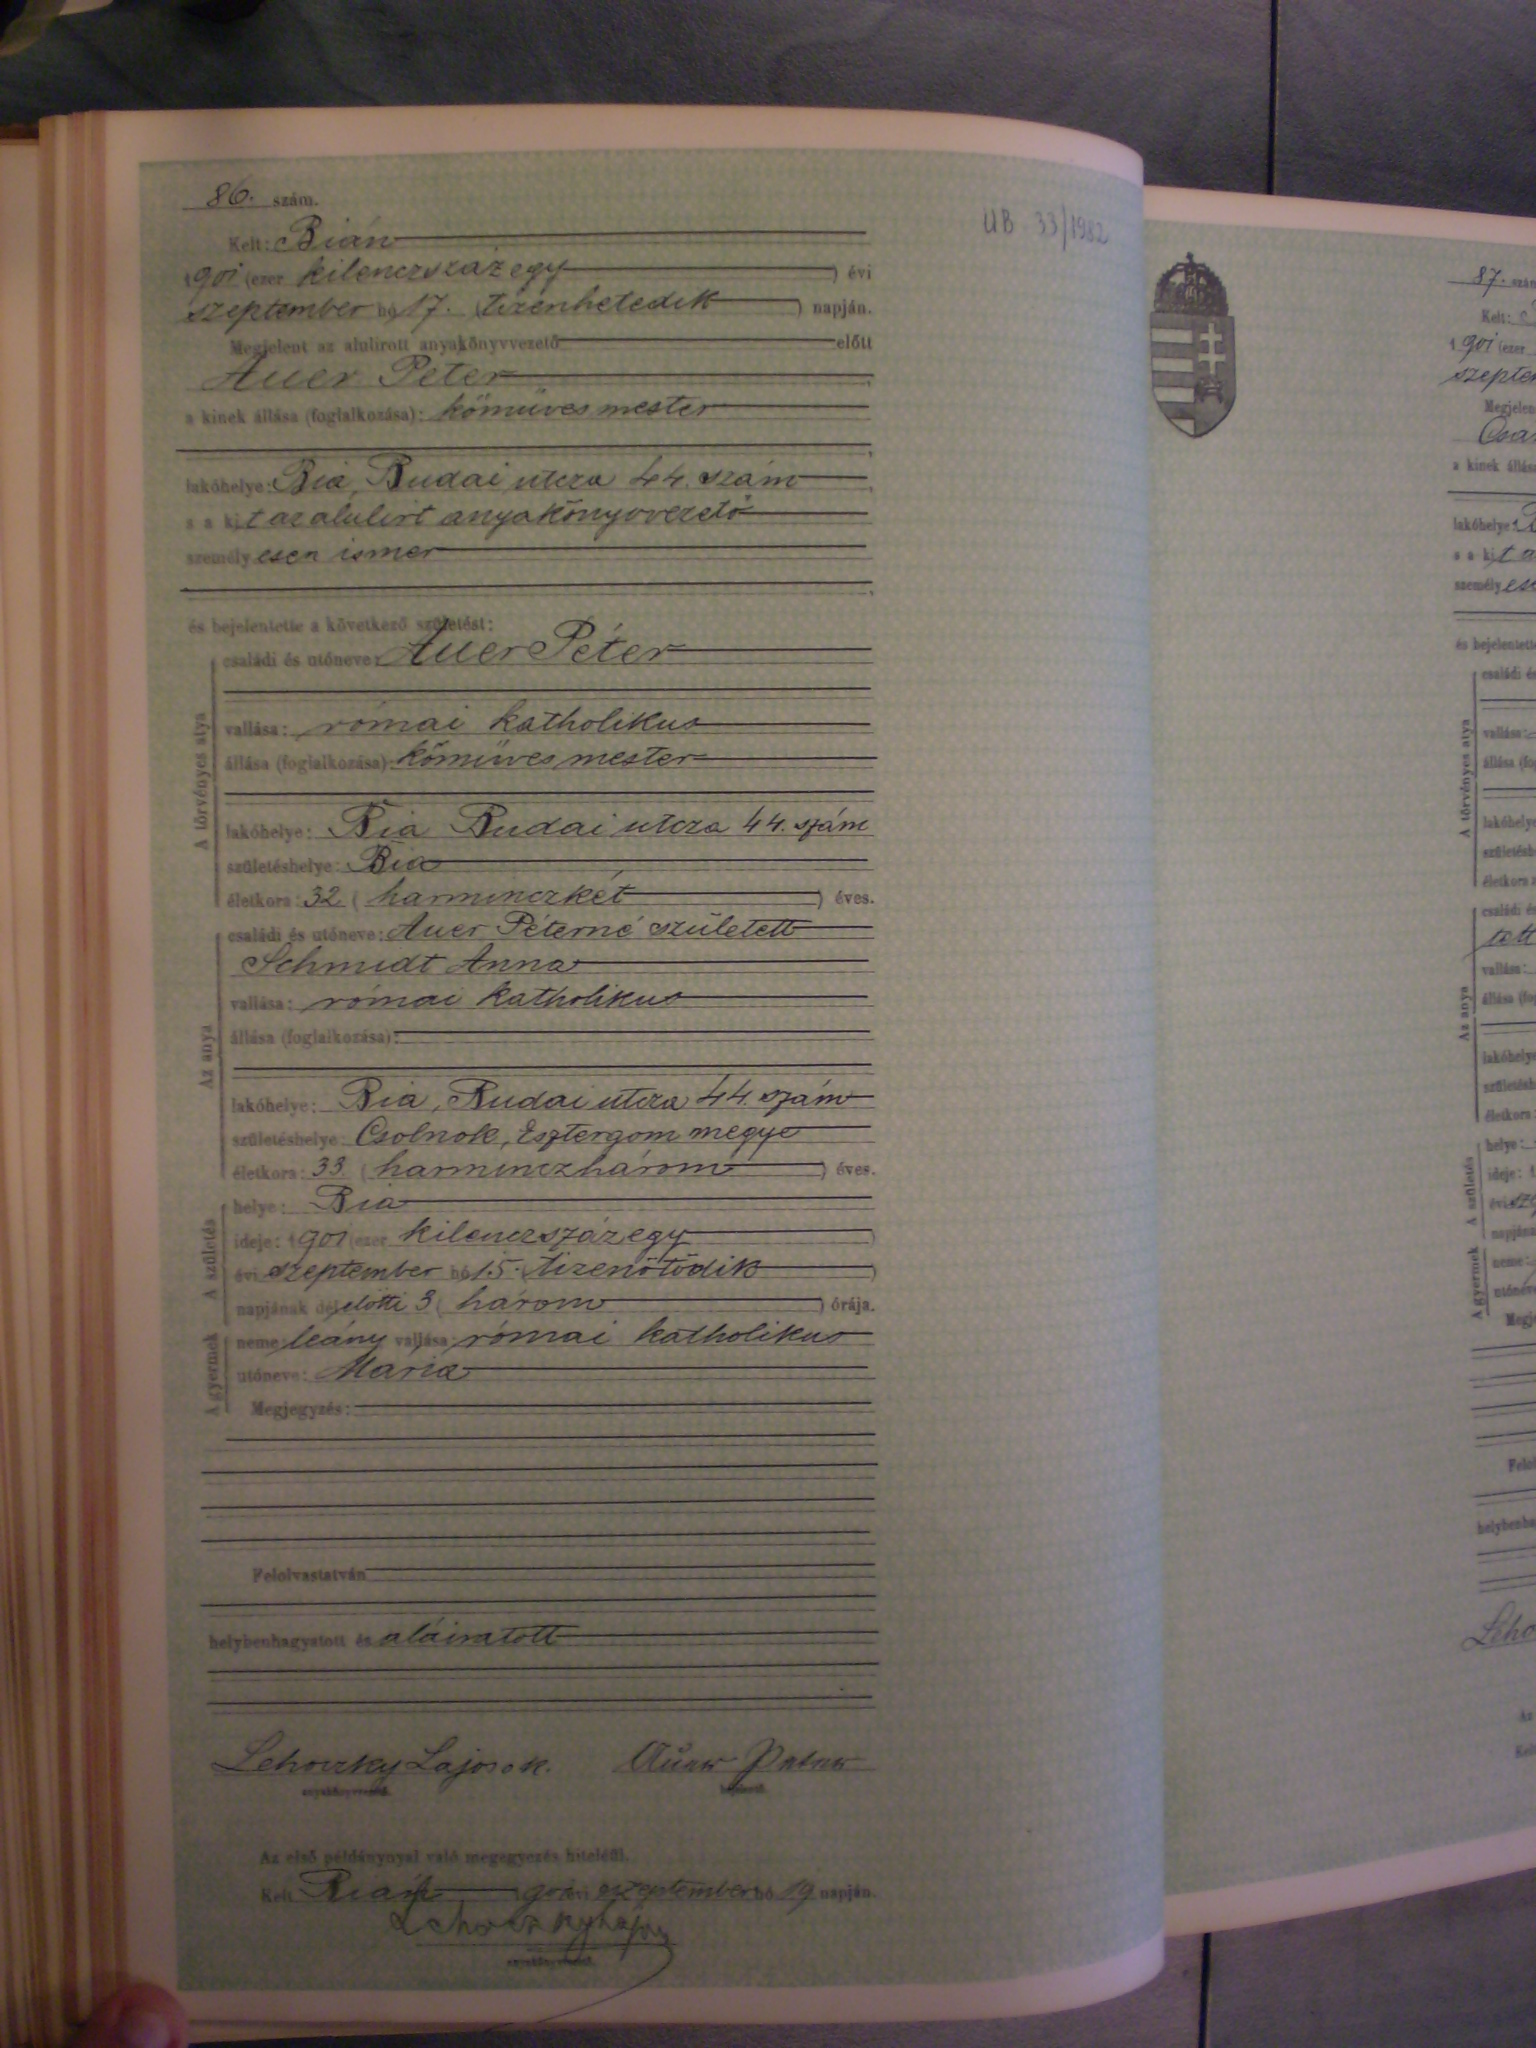 86. szám.
UB 33/1982
Kelt: Bián
1901 (ezer kilenczszáz egy) évi
szeptember hó 17. (tizenhetedik) napján.
Megjelent az alulirott anyakönyvvezető előtt
Auer Péter,
a kinek állása (foglalkozása): kőmüves mester
lakóhelye: Bia, Budai utcza 44. szám,
s a kit az alulirt anyakönyvvezető
személyesen ismer
és bejelentette a következő születést:
A törvényes atya
családi és utóneve: Auer Péter
vallása: római katholikus
állása (foglalkozása): kőmüves mester
lakóhelye: Bia Budai utcza 44. szám
születéshelye: Bia
életkora: 32 (harminczkét) éves.
Az anya
családi és utóneve: Auer Péterné született
Schmidt Anna
vallása: római katholikus
állása (foglalkozása):
lakóhelye: Bia, Budai utcza 44. szám
születéshelye: Csolnok, Esztergom megye
életkora: 33. (harminczhárom) éves.
A születés
helye: Bia
ideje: 1901 (ezer kilenczszázegy)
évi szeptember hó 15. (tizenötödik)
napjának délelőtti 3 (három) órája.
A gyermek
neme: leány vallása: római katholikus
utóneve: Mária
Megjegyzés:
Felolvastatván
helybenhagyatott és aláiratott
Lehoczky Lajos s. k. Auer Peter
anyakönyvvezető. bejelentő.
Az első példánynyal való megegyezés hiteléül.
Kelt Bián 1901 évi szeptember hó 19 napján.
Lehoczky Lajos
anyakönyvvezető.
87. szám
Kelt:
1901 (ezer
Megjelen
a kinek állás
lakóhelye:
s a kit a
személyes
és bejelentette
A törvényes atya
családi és
vallása:
állása (fog
lakóhelye
születésh
életkora:
Az anya
családi és
tett
vallása:
állása (fog
lakóhelye
születésh
életkora:
A születés
helye:
ideje: 1
évi
napjána
A gyermek
neme:
utóneve
Megje
Felol
helybenha
Leho
Az
Kelt